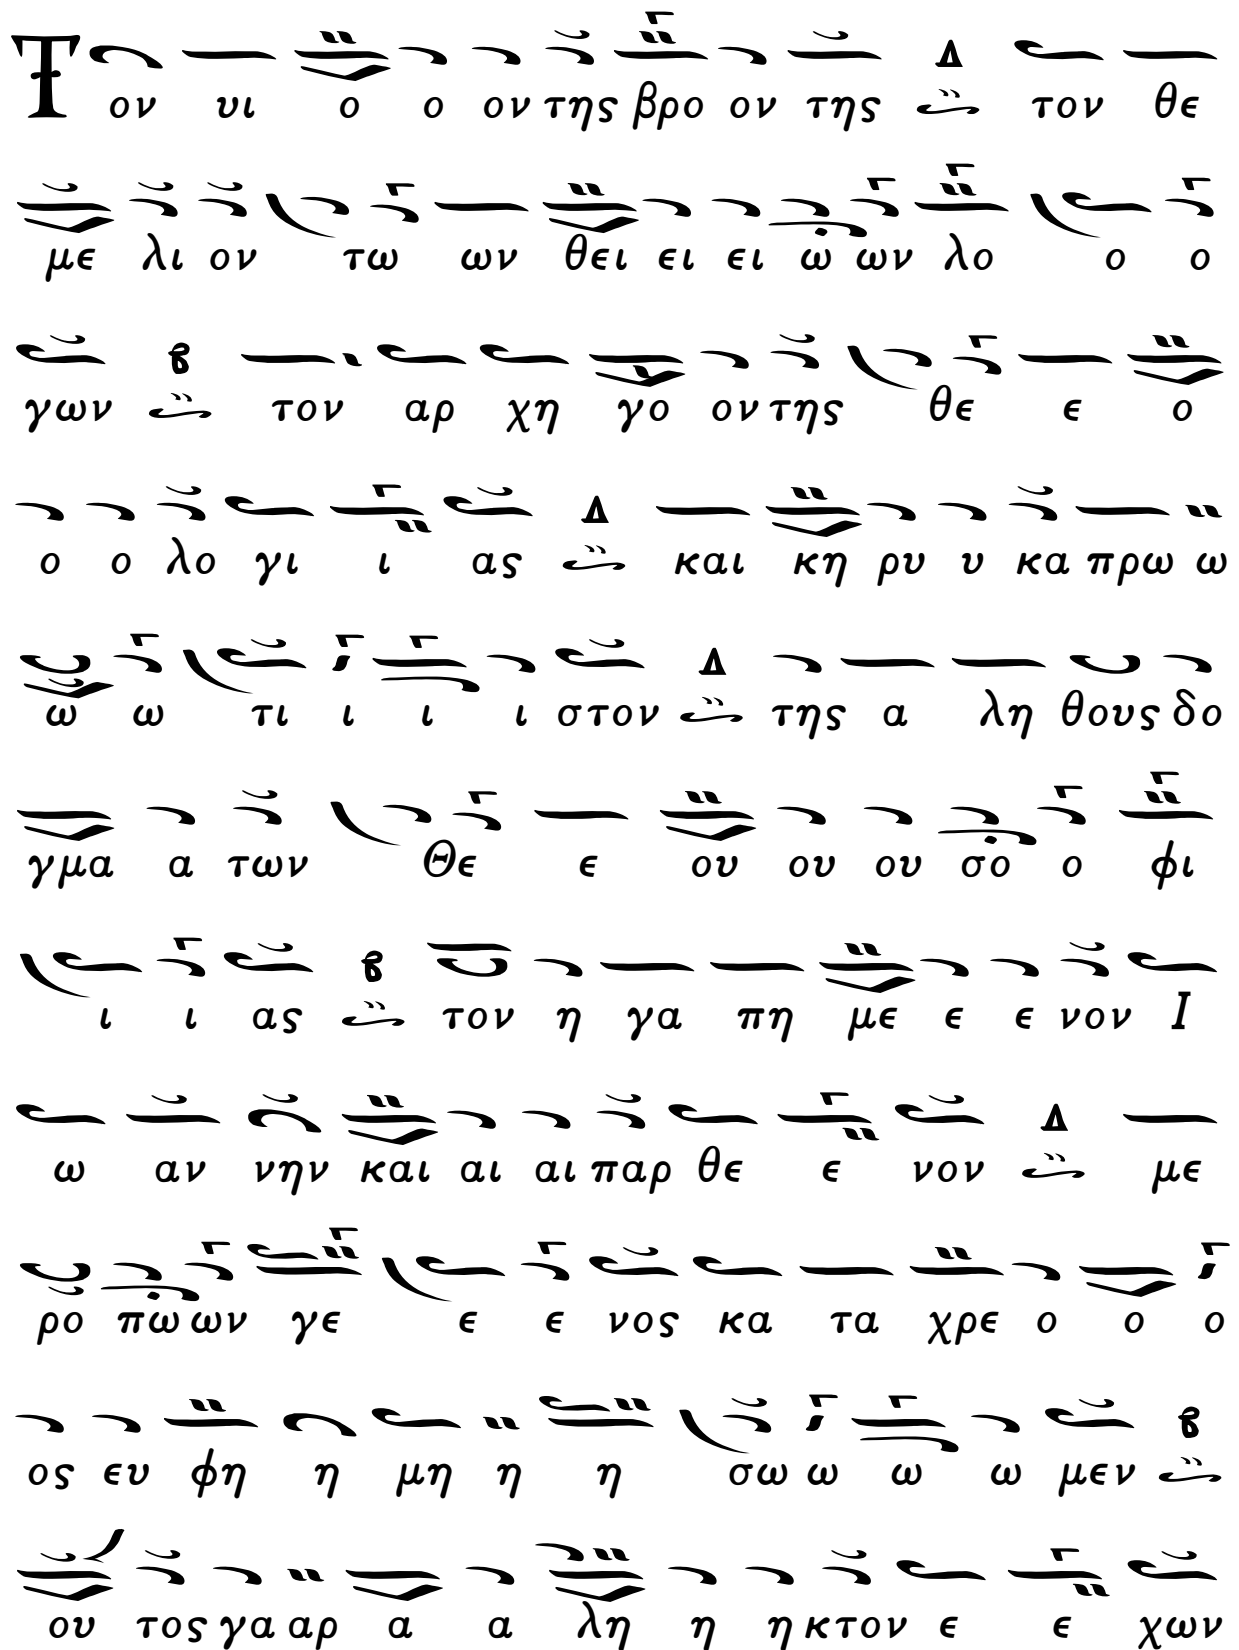 Τ ον υι ο ο ον της βρο ον της Δ τον θε
με λι ον τω ων θει ει ει ω ων λο ο ο
γων β τον αρ χη γο ον της θε ε ο
ο ο λο γι ι ας Δ και κη ρυ υ κα πρω ω
ω ω τι ι ι ι στον Δ της α λη θους δο
γμα α των Θε ε ου ου ου σο ο φι
ι ι ας β τον η γα πη με ε ε νον Ι
ω αν νην και αι αι παρ θε ε νον Δ με
ρο πω ων γε ε ε νος κα τα χρε ο ο ο
ος ευ φη η μη η η σω ω ω ω μεν β
ου τος γα αρ α α λη η η κτον ε ε χων